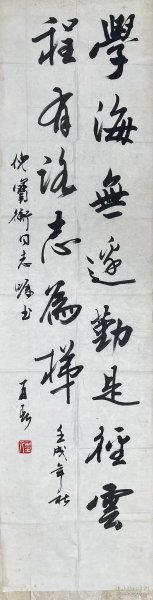 學海無邊勤是徑雲
程有路志為梯
壬戌年秋
倪寶衡同志囑書